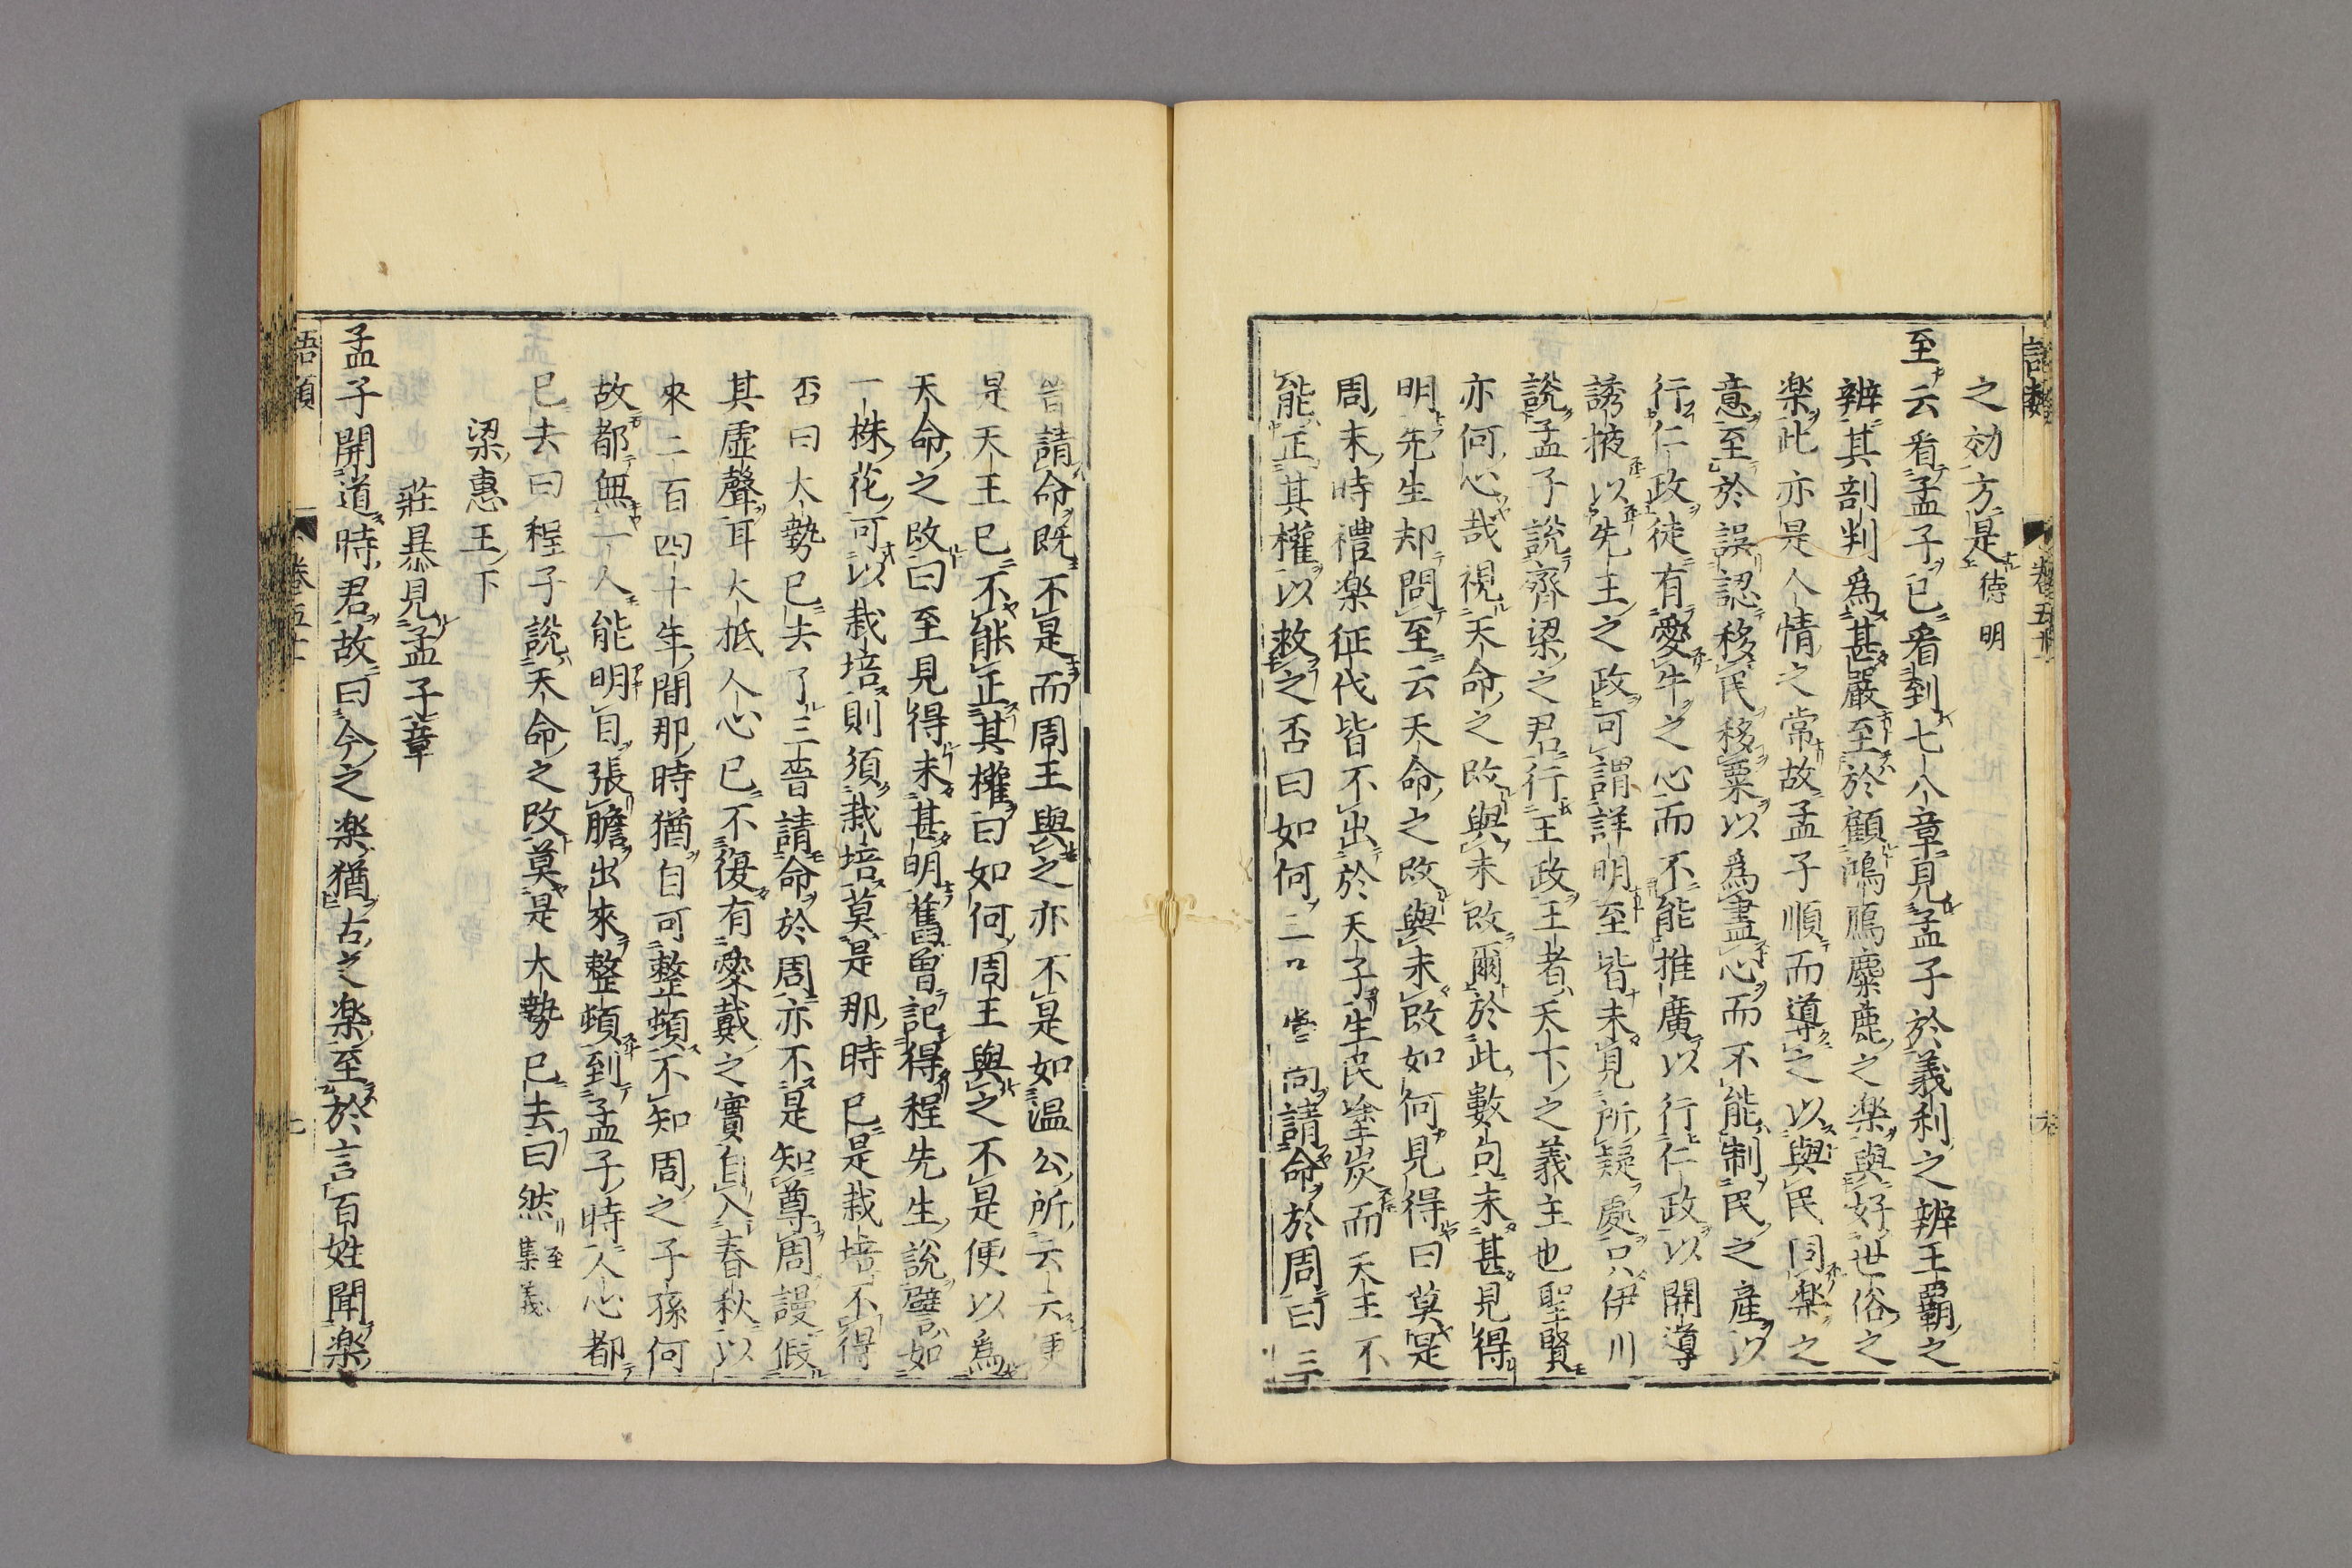 之効方是德明
至云看孟子已看到七八章見孟子於義利之辨王霸之
辨其剖判爲甚嚴至於顧鴻鴈麋鹿之楽與好世俗之
楽此亦是人情之常故孟子順而導之以與民同楽之
意至於誤認移民移粟以爲盡心而不能制民之産以
行仁政徒有愛牛之心而不能推廣以行仁政以開導
誘掖以先王之政可謂詳明至皆未見所疑處只伊川
說孟子說齊梁之君行王政王者天下之義主也聖賢
亦何心哉視天命之改與未改爾於此數句未甚見得
明先生却問至云天命之改與未改如何見得曰莫是
周末時禮楽征伐皆不出於天子生民塗炭而天王不
能正其權以救之否曰如何三晉尚請命於周曰三
晉請命既不是而周王與之亦不是如温公所云云便
是天王已不能正其權曰如何周王與之不是便以爲
天命之改曰至見得未甚明舊曾記得程先生說譬如
一株花可以栽培則須栽培莫是那時已是栽培不得
否曰大勢已去了三晉請命於周亦不是知尊周謾假
其虚聲耳大抵人心已不復有愛戴之實自入春秋以
來二百四十年間那時猶自可整頓不知周之子孫何
故都無一人能明目張膽出來整頓到孟子時人心都
已去曰程子說天命之改莫是大勢已去曰然至集義
梁惠王下
莊暴見孟子章
孟子開道時君故曰今之楽猶古之楽至於言百姓聞楽
語類
卷五十一
七